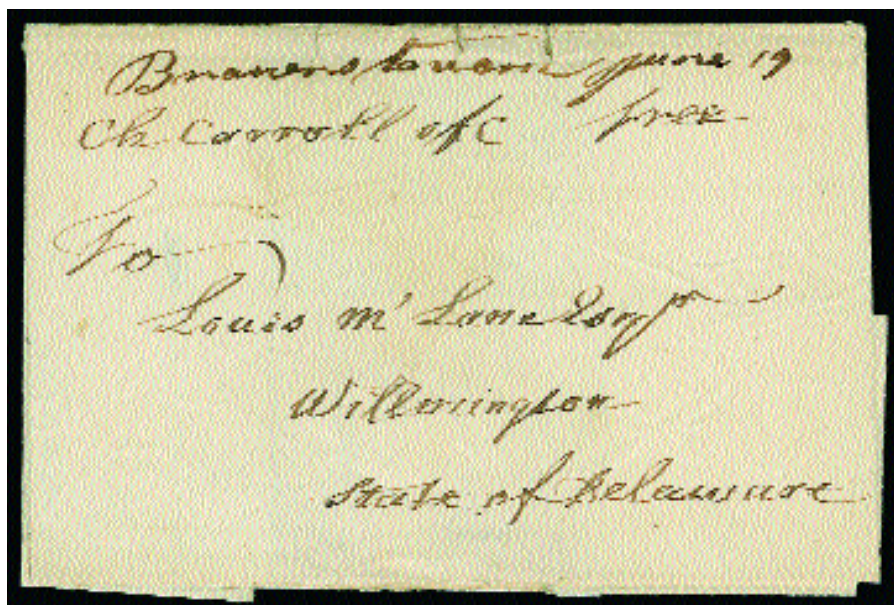 June 19
Ch Carroll of C free
To
Louis Mc Lane Esqr
Willmington
State of Delaware